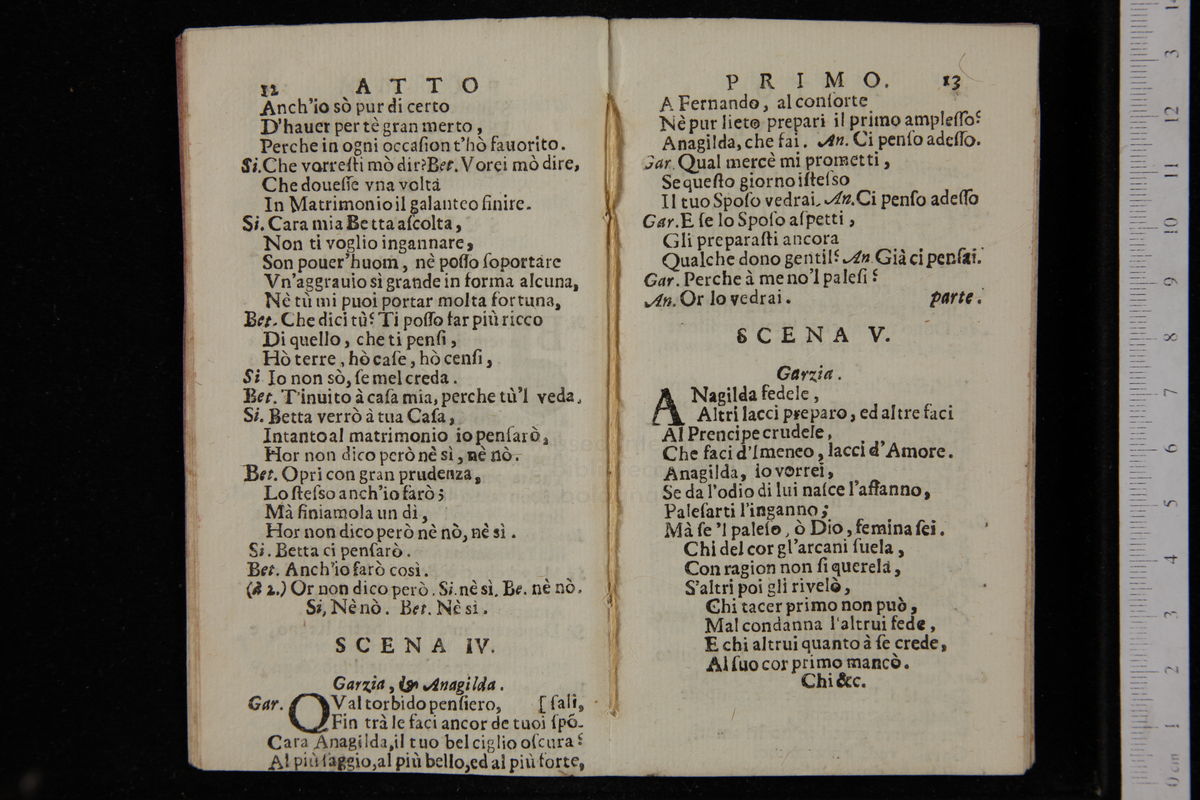 12 ATTO
Anch'io sò pur di certo
D'hauer per tè gran merto,
Perche in ogni occaſion t'hò fauorito.
Si. Che vorreſti mò dir? Bet. Vorei mò dire,
Che doueſſe vna volta
In Matrimonio il galanteo finire.
Si. Cara mia Betta aſcolta,
Non ti voglio ingannare,
Son pouer'huom, nè poſſo ſoportare
Vn'aggrauio sì grande in forma alcuna,
Nè tù mi puoi portar molta fortuna,
Bet. Che dici tù? Ti poſſo far più ricco
Di quello, che ti penſi,
Hò terre, hò caſe, hò cenſi,
Si Io non sò, ſe mel creda.
Bet. T'inuito à caſa mia, perche tù'l veda.
Si. Betta verrò à tua Caſa,
Intanto al matrimonio io penſarò,
Hor non dico però nè sì, nè nò.
Bet. Opri con gran prudenza,
Lo ſteſso anch'io farò;
Mà finiamola un dì,
Hor non dico però nè nò, nè sì.
Si. Betta ci penſarò.
Bet. Anch'io farò così.
(à 2.) Or non dico però. Si. nè sì. Be. nè nò.
Si, Nè nò. Bet. Nè si.
SCENA IV.
Garzia, & Anagilda.
Gar. QVal torbido penſiero, [ſali,
Fin trà le faci ancor de tuoi ſpo-
Cara Anagilda, il tuo bel ciglio oſcura?
Al più ſaggio, al più bello, ed al più forte,
PRIMO. 13
A Fernando, al conſorte
Nè pur lieto prepari il primo ampleſſo?
Anagilda, che fai. An. Ci penſo adeſſo.
Gar. Qual mercè mi prometti,
Se queſto giorno iſteſso
Il tuo Spoſo vedrai. An. Ci penſo adeſſo
Gar. E ſe lo Spoſo aſpetti,
Gli preparaſti ancora
Qualche dono gentil? An. Già ci penſai.
Gar. Perche à me no'l paleſi?
An. Or lo vedrai. parte.
SCENA V.
Garzia.
ANagilda fedele,
Altri lacci preparo, ed altre faci
Al Prencipe crudele,
Che faci d'Imeneo, lacci d'Amore.
Anagilda, io vorrei,
Se da l'odio di lui naſce l'affanno,
Paleſarti l'inganno;
Mà ſe 'l paleſo, ò Dio, femina ſei.
Chi del cor gl'arcani ſuela,
Con ragion non ſi querela,
S'altri poi gli rivelò,
Chi tacer primo non può,
Mal condanna l'altrui fede,
E chi altrui quanto à ſe crede,
Al ſuo cor primo mancò.
Chi &c.